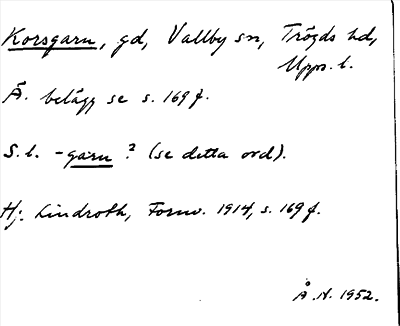 Korsgarn, gd, Vallby sn, Trögds hd,
Upps. l.
Ä. belägg se s. 169 f.
S. l. -garn? (se detta ord).
Hj. Lindroth, Fornv. 1914, s. 169 f.
Å. N. 1952.